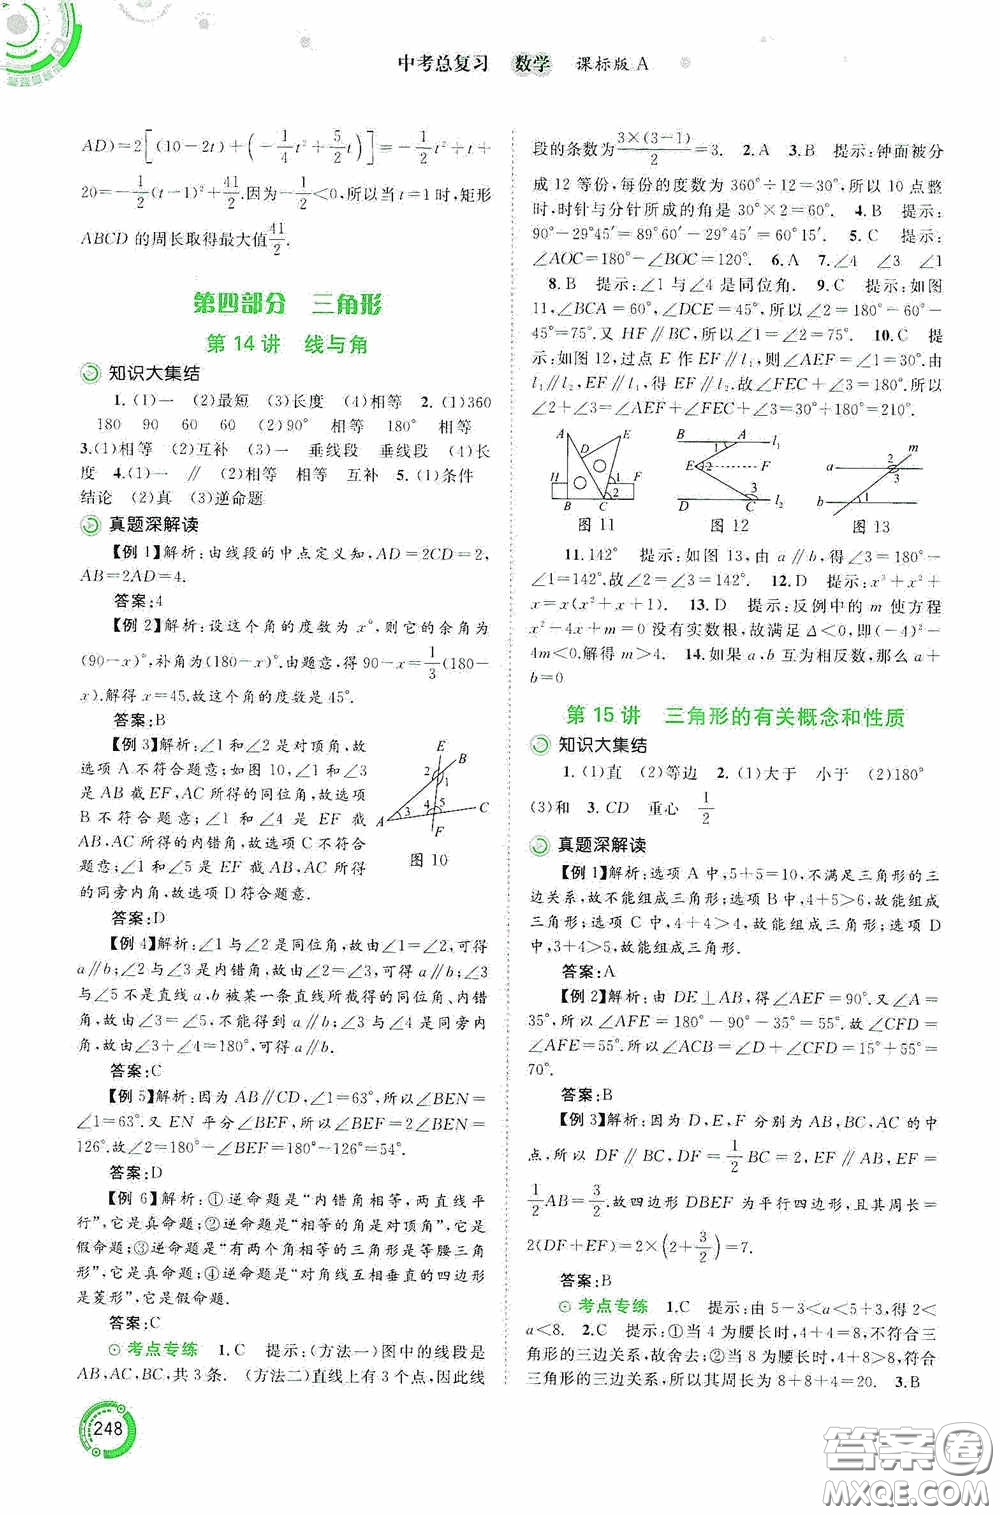 中考总复习 数学 课标版 A
AD)=2[(10-2t)+(-1/4t²+5/2t)]=-1/2t²+t+
20=-1/2(t-1)²+41/2.因为-1/2<0,所以当t=1时,矩形
ABCD的周长取得最大值41/2.
第四部分 三角形
第14讲 线与角
知识大集结
1.(1)一 (2)最短 (3)长度 (4)相等 2.(1)360
180 90 60 60 (2)90° 相等 180° 相等
3.(1)相等 (2)互补 (3)一 垂线段 垂线段 (4)长
度 4.(1)一 ∥ (2)相等 相等 互补 5.(1)条件
结论 (2)真 (3)逆命题
真题深解读
【例1】解析:由线段的中点定义知,AD=2CD=2,
AB=2AD=4.
答案:4
【例2】解析:设这个角的度数为x°,则它的余角为
(90-x)°,补角为(180-x)°.由题意,得90-x=1/3(180-
x).解得x=45.故这个角的度数是45°.
答案:B
【例3】解析:∠1和∠2是对顶角,故
选项A不符合题意;如图10,∠1和∠3
是EF截AB,AC所得的同位角,故选项
B不符合题意;∠1和∠4是EF截
AB,AC所得的内错角,故选项C不符合
题意;∠1和∠5是EF截AB,AC所得
的同旁内角,故选项D符合题意.
E B 2 1 3 4 5 A C F
图10
答案:D
【例4】解析:∠1与∠2是同位角,故由∠1=∠2,可得
a∥b;∠2与∠3是内错角,故由∠2=∠3,可得a∥b;∠3
与∠5不是直线a,b被某一条直线所截得的同位角、内错
角,故由∠3=∠5,不能得到a∥b;∠3与∠4是同旁内
角,故由∠3+∠4=180°,可得a∥b.
答案:C
【例5】解析:因为AB∥CD,∠1=63°,所以∠BEN=
∠1=63°.又EN平分∠BEF,所以∠BEF=2∠BEN=
126°.故∠2=180°-∠BEF=180°-126°=54°.
答案:D
【例6】解析:①逆命题是“内错角相等,两直线平
行”,它是真命题;②逆命题是“相等的角是对顶角”,它是
假命题;③逆命题是“有两个角相等的三角形是等腰三角
形”,它是真命题;④逆命题是“对角线互相垂直的四边形
是菱形”,它是假命题.
答案:C
考点专练 1.C 提示:(方法一)图中的线段是
AB,AC,BC,共3条. (方法二)直线上有3个点,因此线
248
段的条数为3×(3-1)/2=3. 2.A 3.B 提示:钟面被分
成12等份,每份的度数为360°÷12=30°,所以10点整
时,时针与分针所成的角是30°×2=60°. 4.B 提示:
90°-29°45′=89°60′-29°45′=60°15′. 5.C 提示:
∠AOC=180°-∠BOC=120°. 6.A 7.∠4 ∠3 ∠1
8.B 提示:∠1与∠4是同位角. 9.C 提示:如图
11,∠BCA=60°,∠DCE=45°,所以∠2=180°-60°-
45°=75°.又HF∥BC,所以∠1=∠2=75°. 10.C 提
示:如图12,过点E作EF∥l₁,则∠AEF=∠1=30°.由
l₁∥l₂,EF∥l₁,得EF∥l₂.故∠FEC+∠3=180°.所以
∠2+∠3=∠AEF+∠FEC+∠3=30°+180°=210°.
A E D H 1 F B C 2
图11
B A l₁ 1 E 2 F 3 D C l₂
图12
m 2 a 3 b 1
图13
11.142° 提示:如图13,由a∥b,得∠3=180°-
∠1=142°.故∠2=∠3=142°. 12.D 提示:x³+x²+
x=x(x²+x+1). 13.D 提示:反例中的m使方程
x²-4x+m=0没有实数根,故满足Δ<0,即(-4)²-
4m<0.解得m>4. 14.如果a,b互为相反数,那么a+
b=0
第15讲 三角形的有关概念和性质
知识大集结
1.(1)直 (2)等边 2.(1)大于 小于 (2)180°
(3)和 3.CD 重心 1/2
真题深解读
【例1】解析:选项A中,5+5=10,不满足三角形的三
边关系,故不能组成三角形;选项B中,4+5>6,故能组成
三角形;选项C中,4+4>4,故能组成三角形;选项D
中,3+4>5,故能组成三角形.
答案:A
【例2】解析:由DE⊥AB,得∠AEF=90°.又∠A=
35°,所以∠AFE=180°-90°-35°=55°.故∠CFD=
∠AFE=55°.所以∠ACB=∠D+∠CFD=15°+55°=
70°.
答案:B
【例3】解析:因为D,E,F分别为AB,BC,AC的中
点,所以DF∥BC,DF=1/2BC=2,EF∥AB,EF=
1/2AB=3/2.故四边形DBEF为平行四边形,且其周长为
2(DF+EF)=2×(2+3/2)=7.
答案:B
考点专练 1.C 提示:由5-3<a<5+3,得2<
a<8. 2.C 提示:①当4为腰长时,不符合三
角形的三边关系,故舍去;②当8为腰长时,4+8>8,符合
三角形的三边关系,所以其周长为8+8+4=20. 3.B
答案卷
MXQE.COM